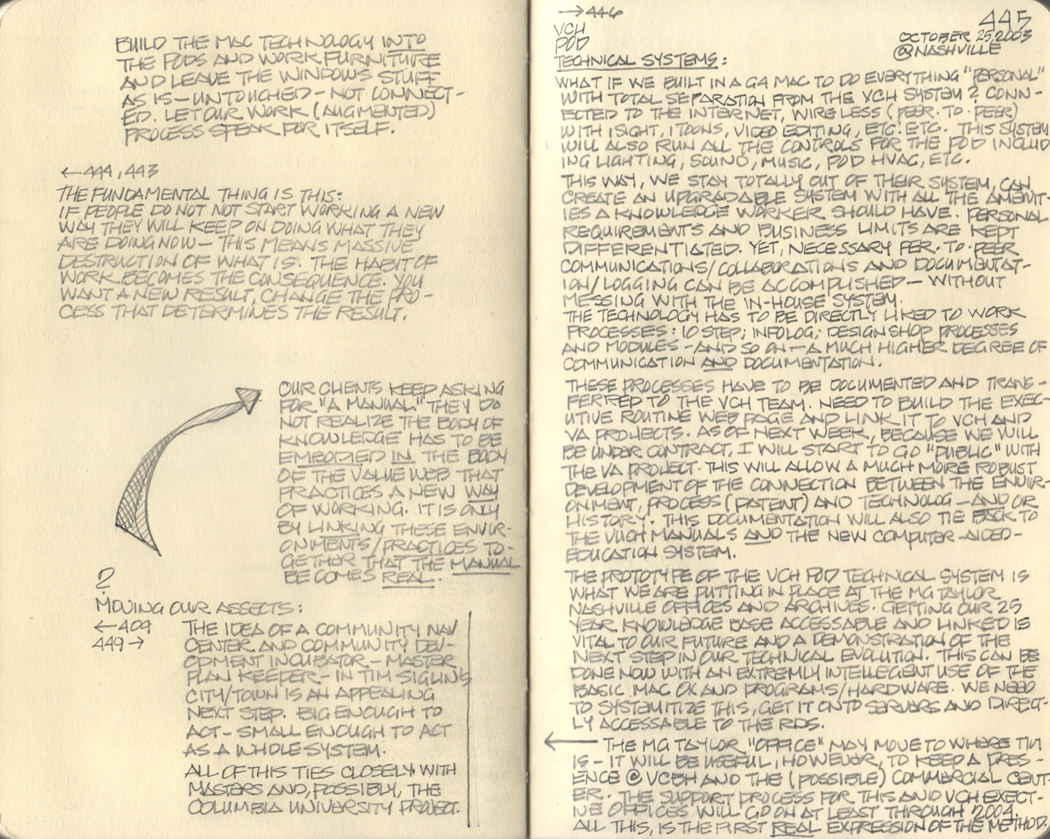 BUILD THE MAC TECHNOLOGY INTO
THE PODS AND WORK FURNITURE
AND LEAVE THE WINDOWS STUFF
AS IS – UNTOUCHED – NOT CONNECT-
ED. LET OUR WORK (AUGMENTED)
PROCESS SPEAK FOR ITSELF.
←444, 443
THE FUNDAMENTAL THING IS THIS:
IF PEOPLE DO NOT NOT START WORKING A NEW
WAY THEY WILL KEEP ON DOING WHAT THEY
ARE DOING NOW – THIS MEANS MASSIVE
DESTRUCTION OF WHAT IS. THE HABIT OF
WORK BECOMES THE CONSEQUENCE. YOU
WANT A NEW RESULT, CHANGE THE PRO-
CESS THAT DETERMINES THE RESULT.
OUR CLIENTS KEEP ASKING
FOR "A MANUAL" THEY DO
NOT REALIZE THE BODY OF
KNOWLEDGE HAS TO BE
EMBODIED IN THE BODY
OF THE VALUE WEB THAT
PRACTICES A NEW WAY
OF WORKING. IT IS ONLY
BY LINKING THESE ENVIR-
ONMENTS/PRACTICES TO-
GETHER THAT THE MANUAL
BE COMES REAL.
?
MOVING OUR ASSECTS:
←409
449→
THE IDEA OF A COMMUNITY NAV
CENTER AND COMMUNITY DEV-
OPMENT INCUBATOR – MASTER
PLAN KEEPER – IN TIM SIGLIN'S
CITY/TOWN IS AN APPEALING
NEXT STEP. BIG ENOUGH TO
ACT – SMALL ENOUGH TO ACT
AS A WHOLE SYSTEM.
ALL OF THIS TIES CLOSELY WITH
MASTERS AND, POSSIBLY, THE
COLUMBIA UNIVERSITY PROJECT.
→446
445
VCH
POD
OCTOBER 25, 2003
@NASHVILLE
TECHNICAL SYSTEMS:
WHAT IF WE BUILT IN A G4 MAC TO DO EVERYTHING "PERSONAL"
WITH TOTAL SEPARATION FROM THE VCH SYSTEM? CONN-
ECTED TO THE INTERNET, WIRELESS (PEER·TO·PEER)
WITH ISIGHT, ITOONS, VIDEO EDITING, ETC. ETC. THIS SYSTEM
WILL ALSO RUN ALL THE CONTROLS FOR THE POD INCLUD
ING LIGHTING, SOUND, MUSIC, POD HVAC, ETC.
THIS WAY, WE STAY TOTALLY OUT OF THEIR SYSTEM, CAN
CREATE AN UPGRADABLE SYSTEM WITH ALL THE AMENIT-
IES A KNOWLEDGE WORKER SHOULD HAVE. PERSONAL
REQUIREMENTS AND BUSINESS LIMITS ARE KEPT
DIFFERENTIATED. YET, NECESSARY PER·TO·PEER
COMMUNICATIONS/COLLABORATIONS AND DOCUMENTAT-
ION/LOGGING CAN BE ACCOMPLISHED – WITHOUT
MESSING WITH THE IN-HOUSE SYSTEM.
THE TECHNOLOGY HAS TO BE DIRECTLY LIKED TO WORK
PROCESSES: 10 STEP; INFOLOG; DESIGNSHOP PROCESSES
AND MODULES – AND SO ON – A MUCH HIGHER DEGREE OF
COMMUNICATION AND DOCUMENTATION.
THESE PROCESSES HAVE TO BE DOCUMENTED AND TRANS-
FERRED TO THE VCH TEAM. NEED TO BUILD THE EXEC-
UTIVE ROUTINE WEB PAGE AND LINK IT TO VCH AND
VA PROJECTS. AS OF NEXT WEEK, BECAUSE WE WILL
BE UNDER CONTRACT, I WILL START TO GO "PUBLIC" WITH
THE VA PROJECT. THIS WILL ALLOW A MUCH MORE ROBUST
DEVELOPMENT OF THE CONNECTION BETWEEN THE ENVIR-
ONMENT, PROCESS (PATENT) AND TECHNOLOG – AND OR
HISTORY. THIS DOCUMENTATION WILL ALSO TIE BACK TO
THE VUCH MANUALS AND THE NEW COMPUTER-AIDED-
EDUCATION SYSTEM.
THE PROTOTYPE OF THE VCH POD TECHNICAL SYSTEM IS
WHAT WE ARE PUTTING IN PLACE AT THE MG TAYLOR
NASHVILLE OFFICES AND ARCHIVES. GETTING OUR 25
YEAR KNOWLEDGE BASE ACCESSABLE AND LINKED IS
VITAL TO OUR FUTURE AND A DEMONSTRATION OF THE
NEXT STEP IN OUR TECHNICAL EVOLUTION. THIS CAN BE
DONE NOW WITH AN EXTREMLY INTELLEGENT USE OF THE
BASIC MAC OX AND PROGRAMS/HARDWARE. WE NEED
TO SYSTEMITIZE THIS, GET IT ONTO SERVERS AND DIRECT-
LY ACCESSABLE TO THE RDS.
← THE MG TAYLOR "OFFICE" MAY MOVE TO WHERE TIM
IS – IT WILL BE USEFUL, HOWEVER, TO KEEP A PRES-
ENCE @ VCBH AND THE (POSSIBLE) COMMERCIAL CENT-
ER. THE SUPPORT PROCESS FOR THIS AND VCH EXECT-
IVE OFFICES WILL GO ON AT LEAST THROUGH 2004.
ALL THIS, IS THE FIRST REAL EXPRESSION OF THE METHOD.